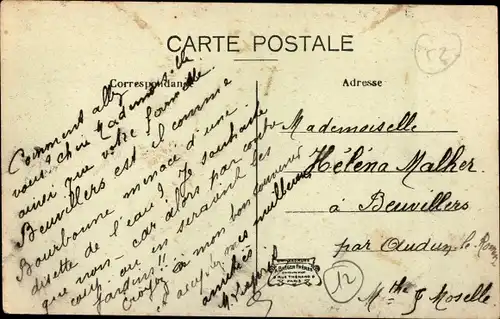 CARTE POSTALE
Correspondance
Adresse
Comment allez
vous? chère Mademoiselle
ainsi que votre famille
Beuvillers est il comme
Bourbonne menacé d'une
disette de l'eau? Je souhaite
que non - car alors par contre
coup, où en seraient les
jardins!!
Croyez à mon bon souvenir
et aux
amitiés meilleures
Mademoiselle
Héléna Malher
à Beuvillers
par Audun le Roman
Mthe & Moselle
52
12
PARIS